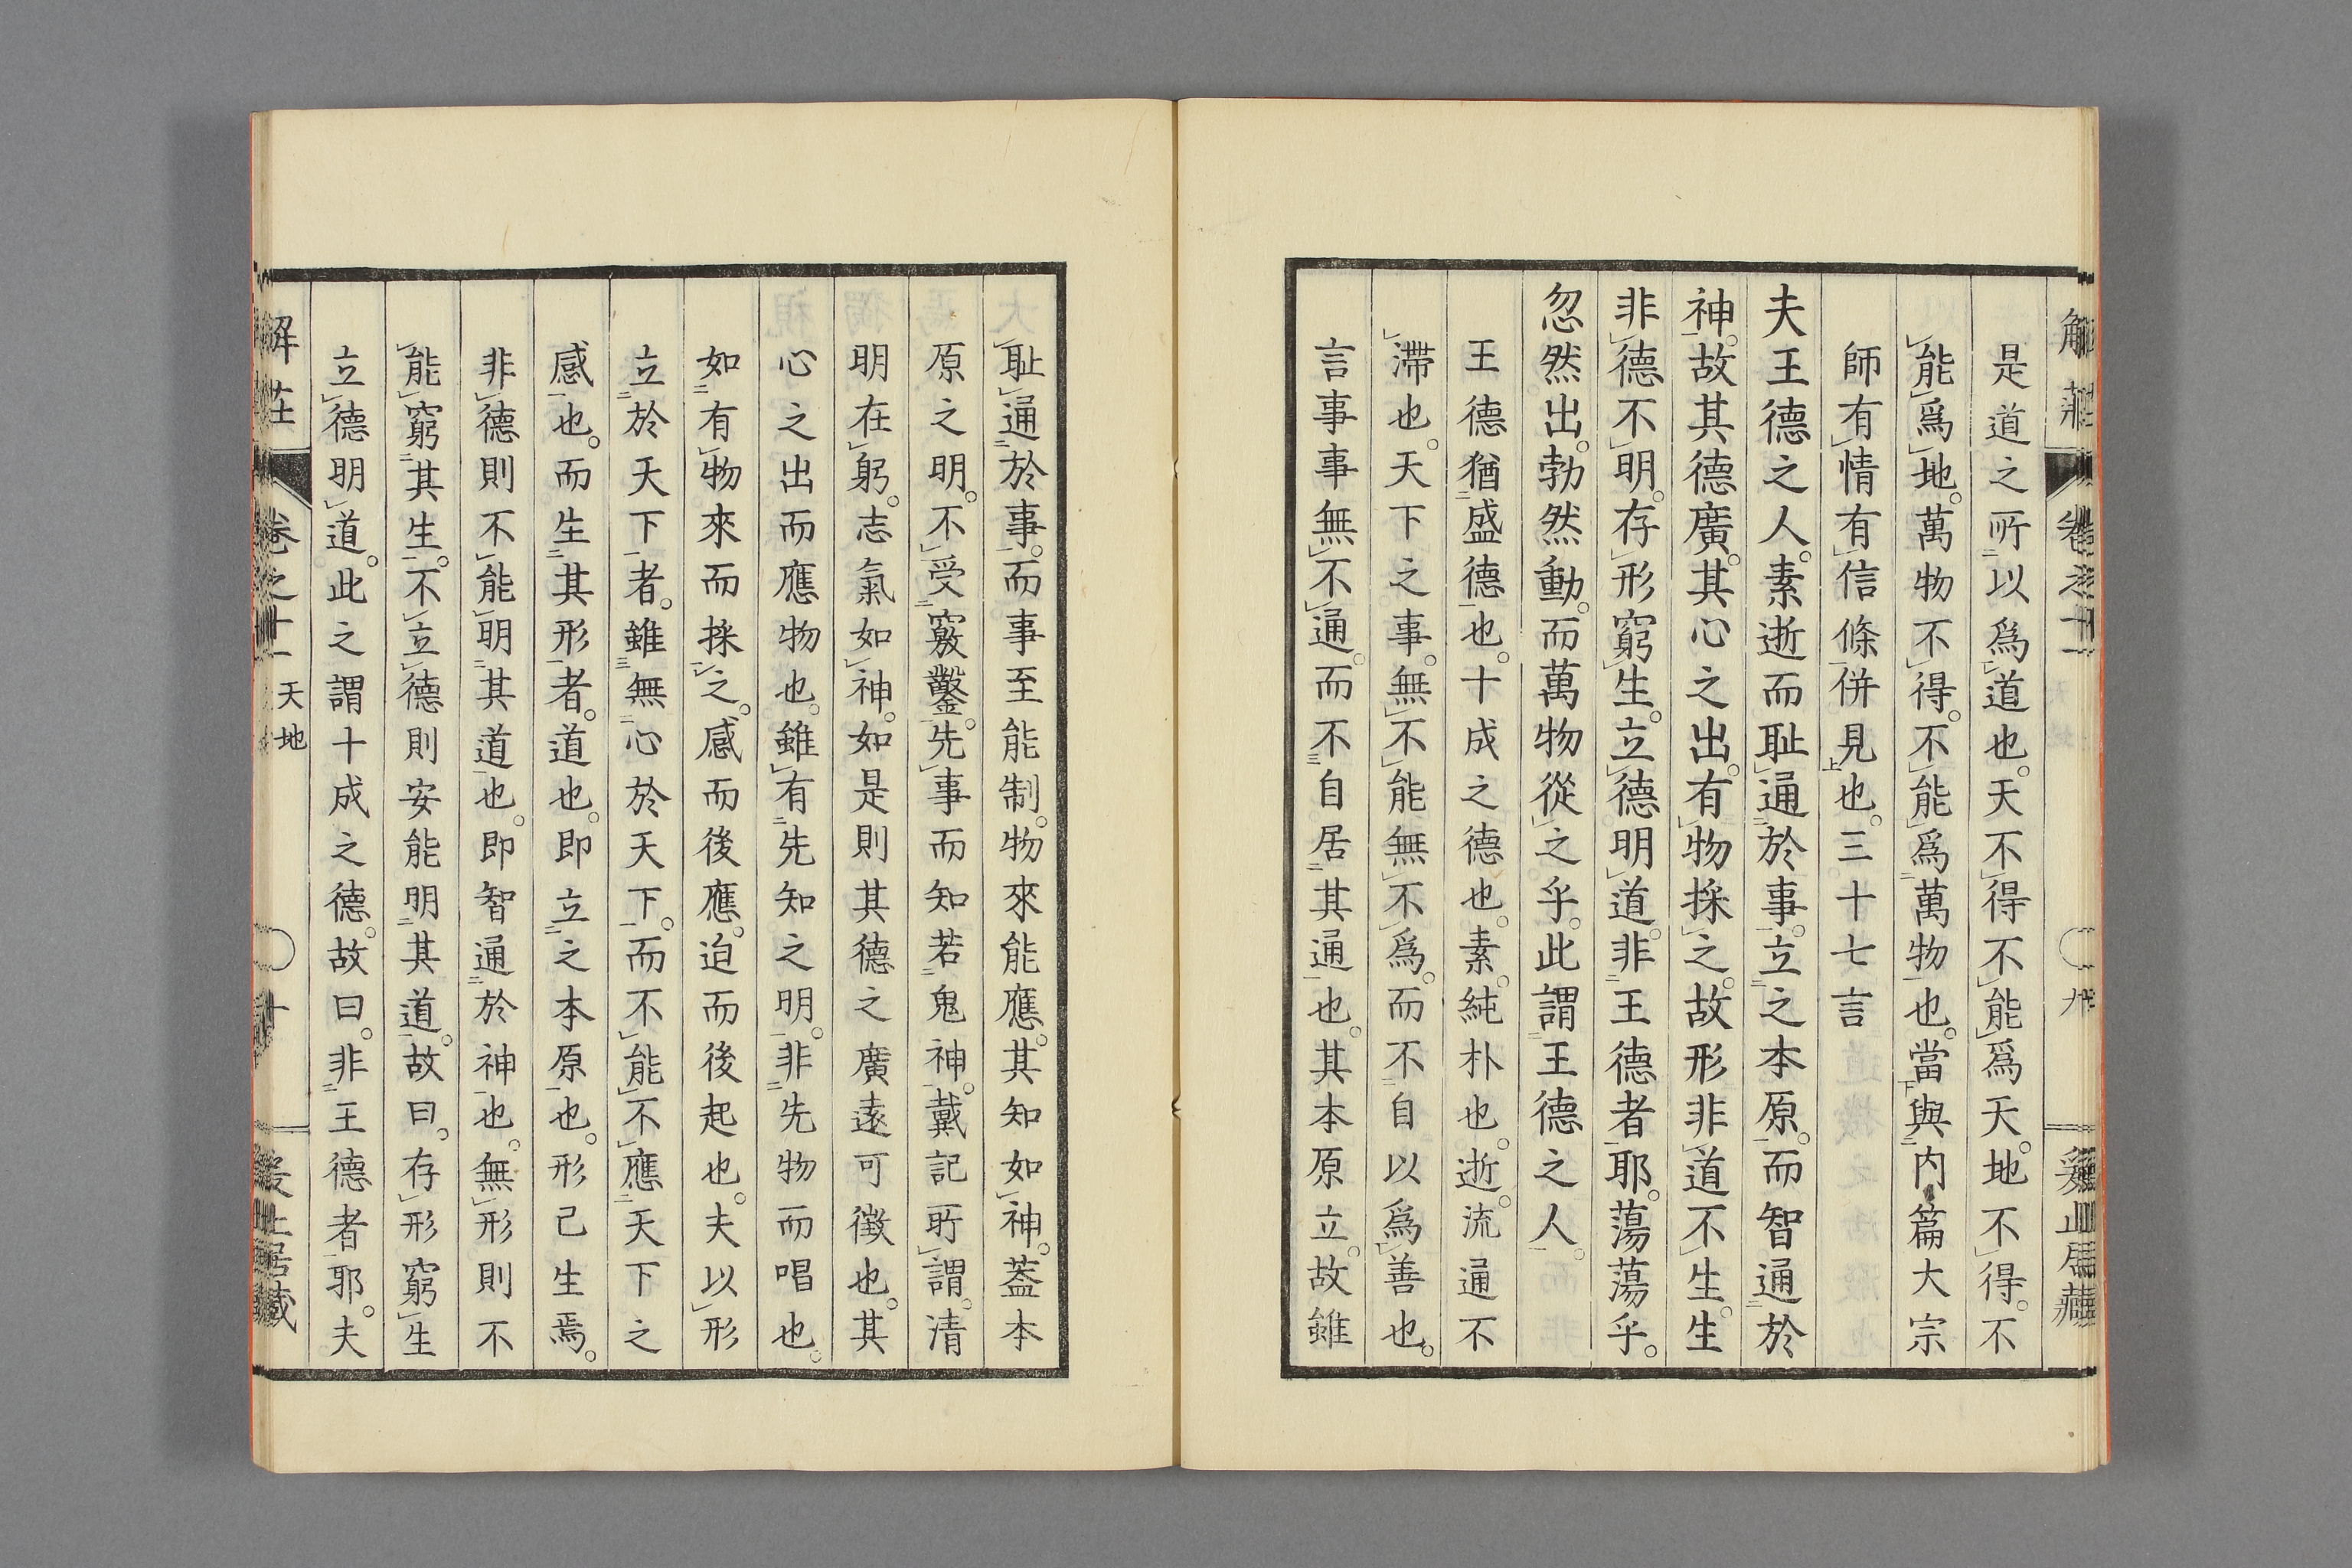 解莊 卷之十一 九
是道之所以爲道也。天不得不能爲天。地不得。不
能爲地。萬物不得。不能爲萬物也。當與内篇大宗
師有情有信條併見也。三十七言
夫王德之人。素逝而恥通於事。立之本原。而智通於
神。故其德廣。其心之出。有物採之。故形非道不生。生
非德不明。存形窮生。立德明道。非王德者耶。蕩蕩乎。
忽然出。勃然動。而萬物從之乎。此謂王德之人。
王德猶盛德也。十成之德也。素。純朴也。逝。流通不
滯也。天下之事。無不能無不爲。而不自以爲善也。
言事事無不通。而不自居其通也。其本原立。故雖
恥通於事。而事至能制。物來能應。其知如神。蓋本
原之明。不受竅鑿。先事而知若鬼神。戴記所謂。清
明在躬。志氣如神。如是則其德之廣遠可徵也。其
心之出而應物也。雖有先知之明。非先物而唱也。
如有物來而採之。感而後應。迫而後起也。夫以形
立於天下者。雖無心於天下。而不能不應天下之
感也。而生其形者。道也。即立之本原也。形己生焉。
非德則不能明其道也。即智通於神也。無形則不
能窮其生。不立德則安能明其道。故曰。存形窮生
立德明道。此之謂十成之德。故曰。非王德者耶。夫
解莊 卷之十一 天地 十